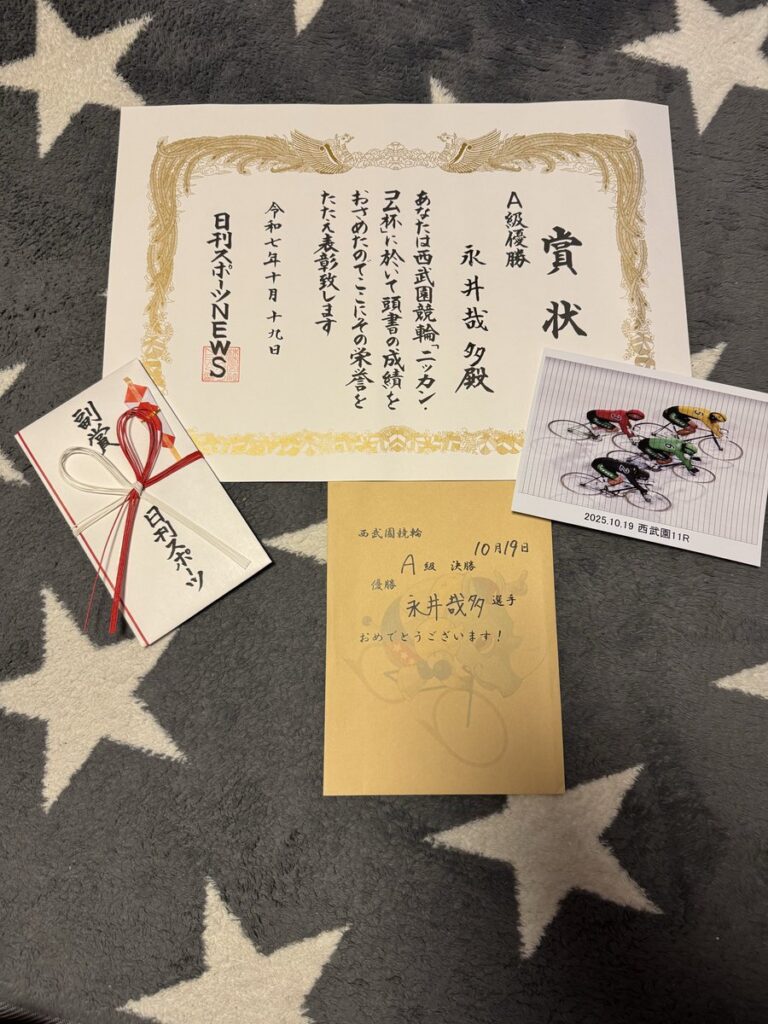 賞状
A級優勝
永井哉多殿
あなたは西武園競輪「ニッカン・
コム杯」に於いて頭書の成績を
おさめたのでここにその栄誉を
たたえ表彰致します
令和七年十月十九日
日刊スポーツNEWS
副賞
日刊スポーツ
2025.10.19 西武園11R
西武園競輪
10月19日
A級 決勝
優勝
永井哉多 選手
おめでとうございます!